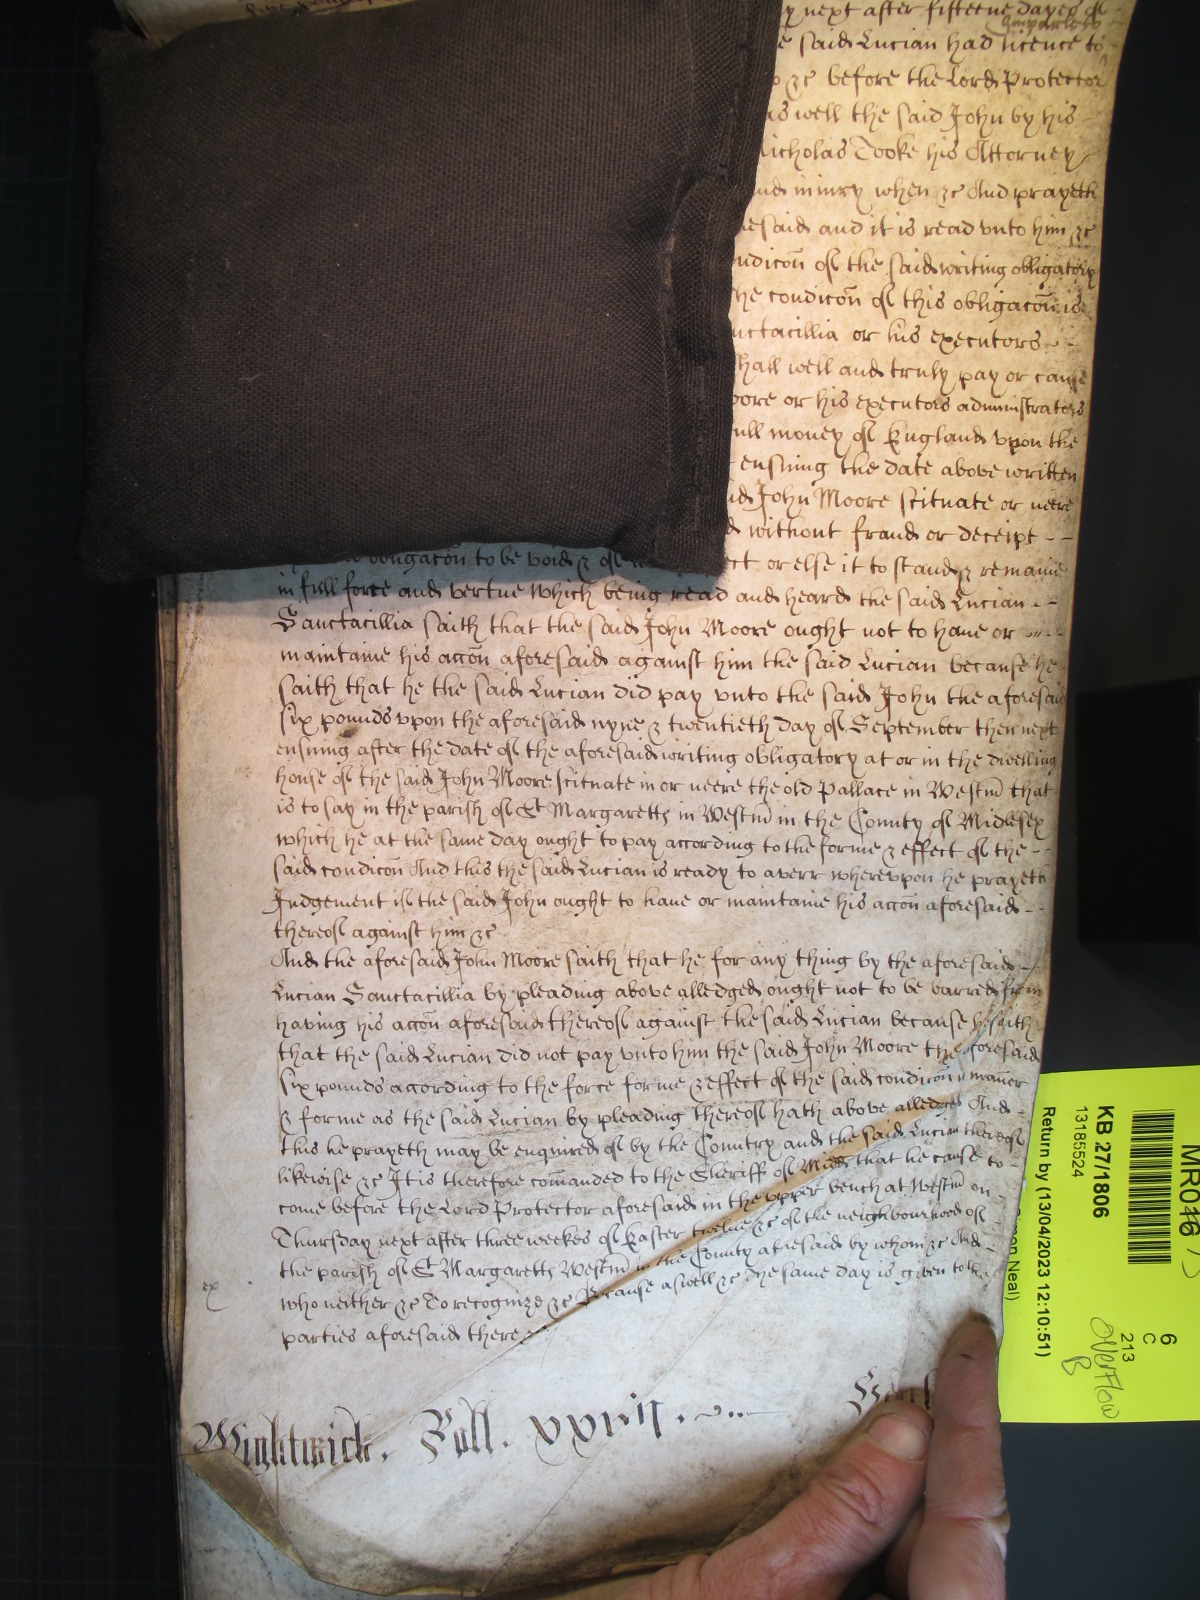 y next after fifteene dayes of
imparle to
e said Lucian had licence to
&c before the Lord Protector
as well the said John by his
Nicholas Cooke his Attorney
and iniury when &c And prayeth
esaid and it is read vnto him &c
ondicōn of the said writing obligatory
he condicōn of this obligacōn is
nctacillia or his executors
shall well and truly pay or cause
oore or his executors administrators
full money of England vpon the
ensuing the date above written
id John Moore scituate or neere
d without fraud or deceipt
obligacōn to be void & of ct or else it to stand & remaine
in full force and vertue Which being read and heard the said Lucian
Sanctacillia saith that the said John Moore ought not to haue or
maintaine his accōn aforesaid against him the said Lucian because he
saith that he the said Lucian did pay vnto the said John the aforesaid
six pounds vpon the aforesaid nyne & twentieth day of September then next
ensuing after the date of the aforesaid writing obligatory at or in the dwelling
house of the said John Moore scituate in or neere the old Pallace in Westm̄ that
is to say in the parish of St Margaretts in Westm̄ in the County of Midlesex
which he at the same day ought to pay according to the forme & effect of the
said condicōn And this the said Lucian is ready to averr wherevpon he prayeth
Judgement if the said John ought to haue or maintaine his accōn aforesaid
thereof against him &c
And the aforesaid John Moore saith that he for any thing by the aforesaid
Lucian Sanctacillia by pleading above alledged ought not to be barred from
having his accōn aforesaid thereof against the said Lucian because he saith
that the said Lucian did not pay vnto him the said John Moore the aforesaid
six pounds according to the force forme & effect of the said condicōn in mañer
& forme as the said Lucian by pleading thereof hath above alledged And
this he prayeth may be enquired of by the Country and the said Lucian thereof
likewise &c It is therefore com̄anded to the Sheriff of Midd that he cause to
come before the Lord Protector aforesaid in the vpper bench at Westm̄ on
Thursday next after three weekes of Easter twelue &c of the neighbourhood of
the parish of St Margaretts Westm̄ in the County aforesaid by whom &c And
ex
who neither &c To recognize &c Because aswell &c The same day is given to the
parties aforesaid there &c
Wightwick. Roll. xxvii.
KB 27/1806
13185524
Return by (13/04/2023 12:10:51)
Neal)
6
C
213
Overflow
B